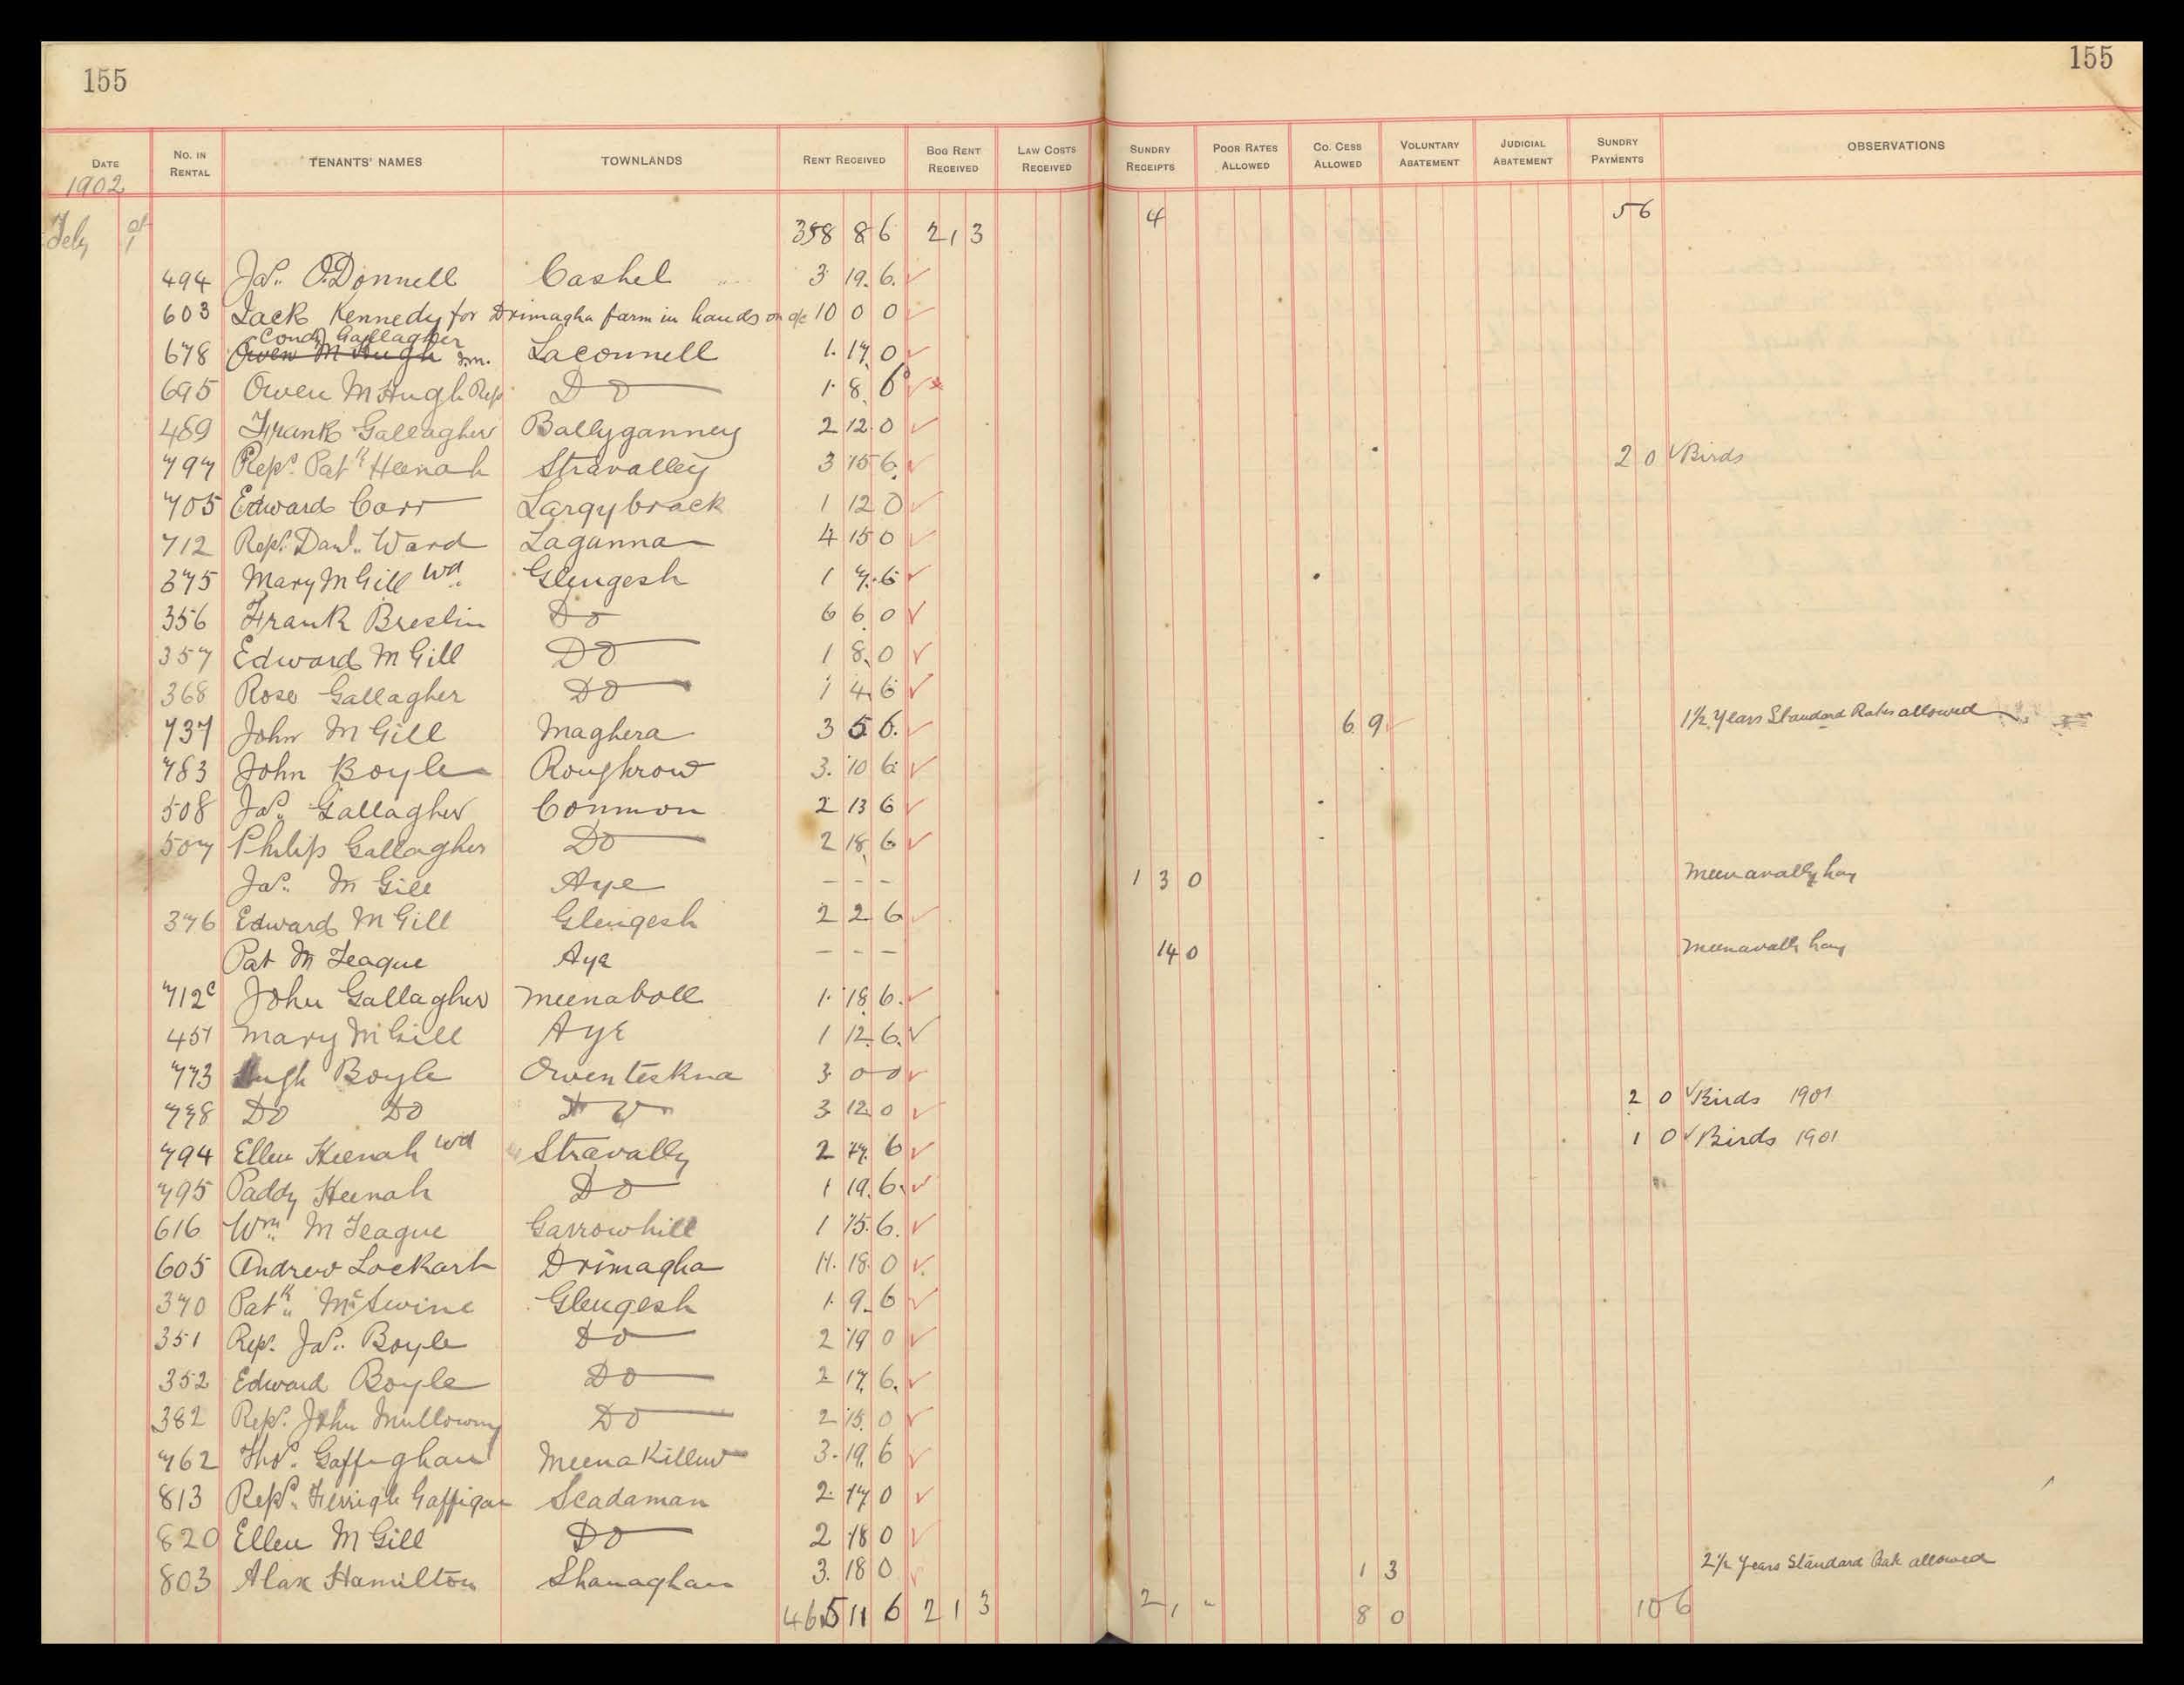 155 155
DATE NO. IN RENTAL TENANTS' NAMES TOWNLANDS RENT RECEIVED BOG RENT RECEIVED LAW COSTS RECEIVED SUNDRY RECEIPTS POOR RATES ALLOWED CO. CESS ALLOWED VOLUNTARY ABATEMENT JUDICIAL ABATEMENT SUNDRY PAYMENTS OBSERVATIONS
1902
Feby 1st 358 8 6 2 1 3 4 5 6
494 Jas. O'Donnell Cashel 3 19 6
603 Jack Kennedy for Drimagha farm in hands on a/c 10 0 0
Condy Gallagher
678 Owen McHugh Jnr. Laconnell 1 17 0
695 Owen McHugh Reps Do 1 8 6
489 Frank Gallagher Ballyganney 2 12 0
797 Reps. Patk Heenah Stravalley 3 15 6 2 0 Birds
705 Edward Carr Largybrack 1 12 0
712 Reps. Danl. Ward Laganna 4 15 0
375 Mary McGill Wd. Glengesh 1 7 6
356 Frank Breslin Do 6 6 0
357 Edward McGill Do 1 8 0
368 Rose Gallagher Do 1 4 6
737 John McGill Maghera 3 5 6 6 9 1½ Years Standard Rates allowed
783 John Boyle Roughrow 3 10 6
508 Jas. Gallagher Common 2 13 6
507 Philip Gallagher Do 2 18 6
Jas. McGill Aye - - - 1 3 0 Meenavally hay
376 Edward McGill Glengesh 2 2 6
Pat McTeague Aye - - - 14 0 Meenavally hay
712c John Gallagher Meenaboll 1 18 6
457 Mary McGill Aye 1 12 6
773 Hugh Boyle Owenteskna 3 0 0
778 Do Do Do 3 12 0 2 0 Birds 1901
794 Ellen Keenah Wd Stravally 2 17 6 1 0 Birds 1901
795 Paddy Heenah Do 1 19 6
616 Wm. McTeague Garrowhill 1 15 6
605 Andrew Lockart Drimagha 11 18 0
370 Patk. McSwine Glengesh 1 9 6
351 Rep. Jas. Boyle Do 2 19 0
352 Edward Boyle Do 2 17 6
382 Reps. John Mullowny Do 2 15 0
762 Thos. Gaffighan Meenakillew 3 19 6
813 Reps. Ferrigle Gaffigan Scadaman 2 17 0
820 Ellen McGill Do 2 18 0
803 Alax Hamilton Shanaghan 3 18 0 1 3 2½ Years Standard Rate allowed
465 11 6 2 1 3 2 1 - 8 0 10 6